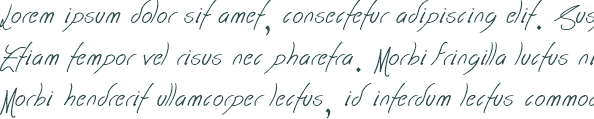 Lorem ipsum dolor sit amet, consectetur adipiscing elit. Sus
Etiam tempor vel risus nec pharetra. Morbi fringilla luctus ni
Morbi hendrerit ullamcorper lectus, id interdum lectus commod